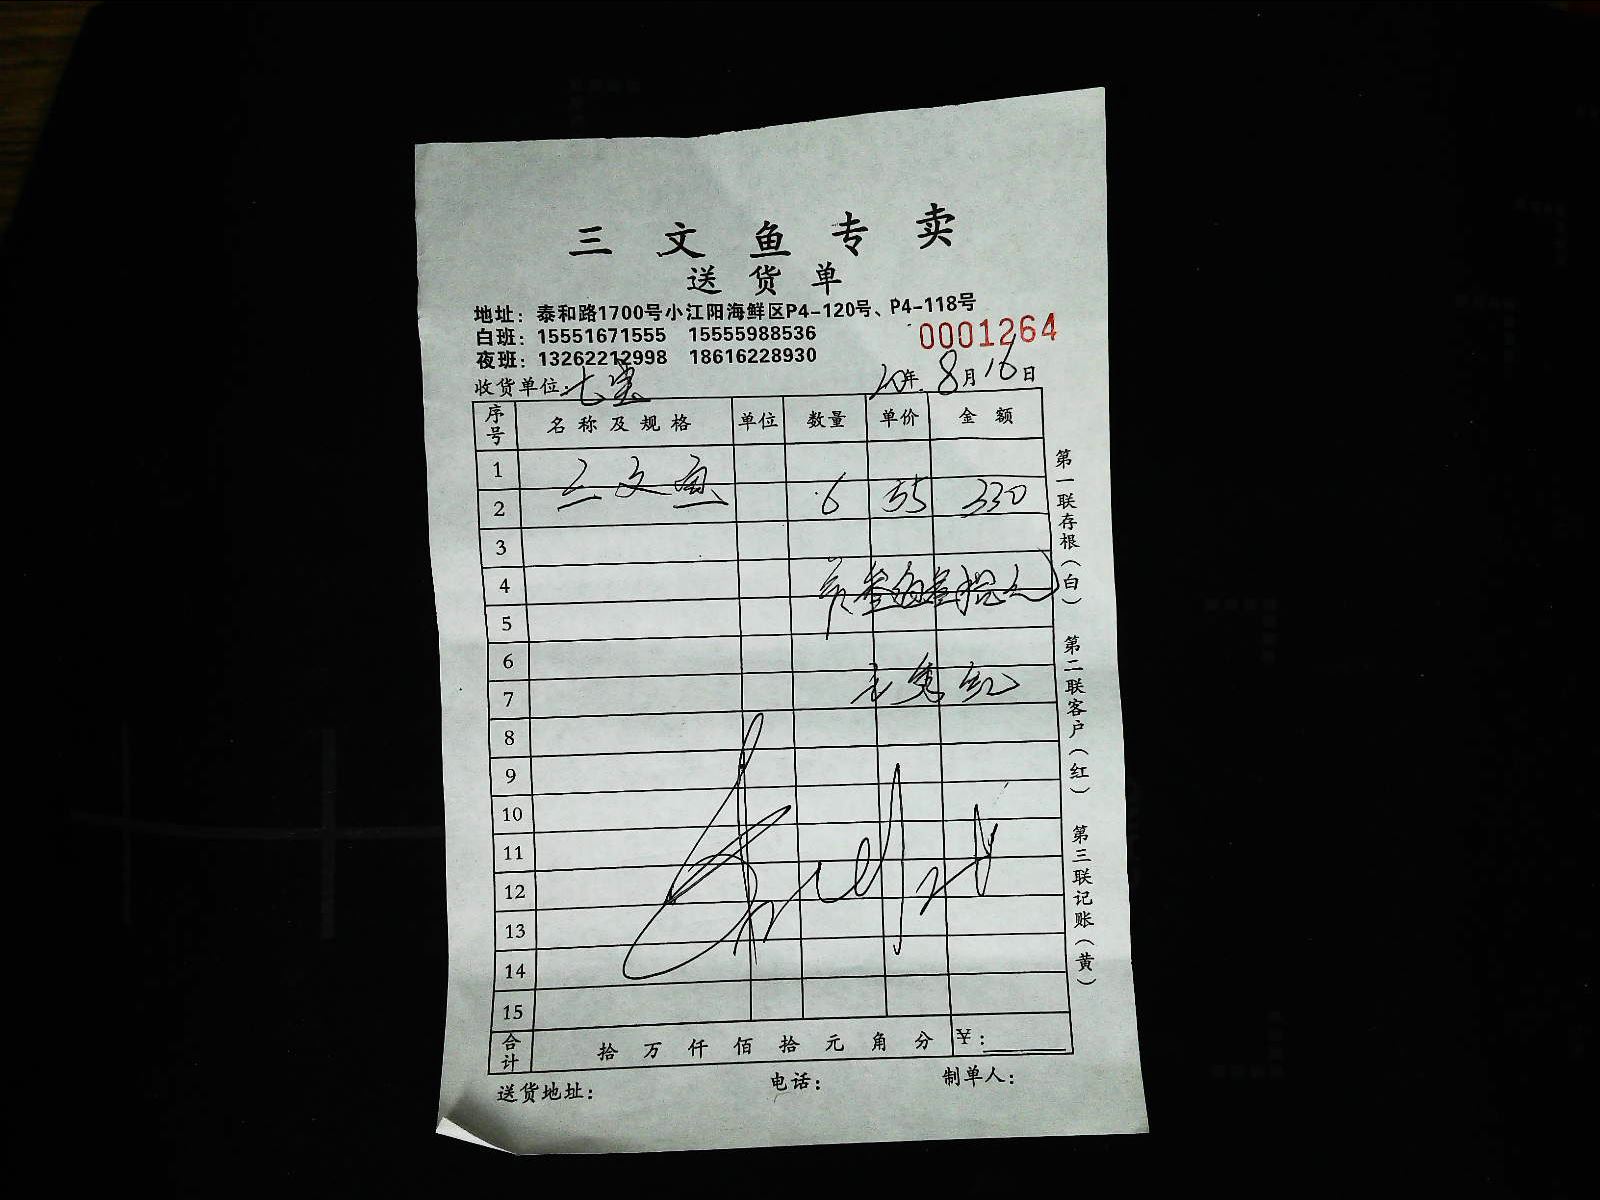 三文鱼专卖
送货单
地址：泰和路1700号小江阳海鲜区P4-120号、P4-118号
白班：15551671555 15555988536
0001264
夜班：13262212998 18616228930
收货单位：七宝 20年 8月16日
序号 名称及规格 单位 数量 单价 金额
1
三文鱼
2 6 55 330
3
4
叁佰叁拾元
5
6
7
8
9
10
11
12
13
14
15
合计 拾 万 仟 佰 拾 元 角 分 ￥：
送货地址： 电话： 制单人：
第一联存根（白） 第二联客户（红） 第三联记账（黄）